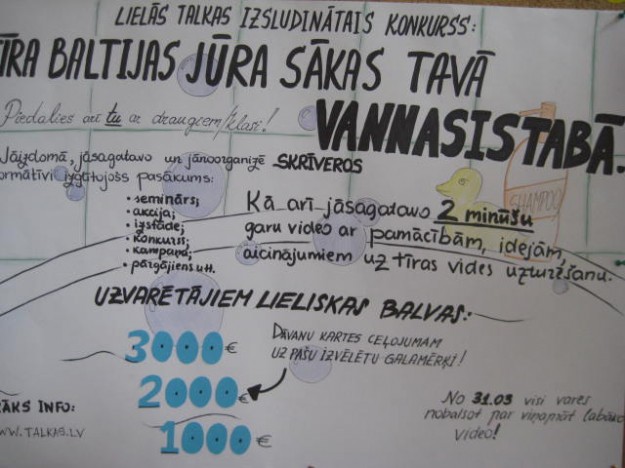 LIELĀS TALKAS IZSLUDINĀTAIS KONKURSS:
ĪRA BALTIJAS JŪRA SĀKAS TAVĀ
VANNASISTABĀ.
Piedalies arī tu ar draugiem/klasi!
Jāizdomā, jāsagatavo un jānoorganizē SKRĪVEROS
ormātīvi izglītojošs pasākums:
• seminārs;
• akcija;
• izstāde;
• konkurss;
• kampaņa;
• pārgājiens utt.
Kā arī jāsagatavo 2 minūšu
garu video ar pamācībām, idejām,
aicinājumiem uz tīras vides uzturēšanu.
SHAMPOO
UZVARĒTĀJIEM LIELISKAS BALVAS:
3000€
2000€
1000€
DĀVANU KARTES CEĻOJUMAM
UZ PAŠU IZVĒLĒTU GALAMĒRĶI!
RĀKS INFO:
WWW.TALKAS.LV
No 31.03 visi varēs
nobalsot par viņuprāt labāko
video!